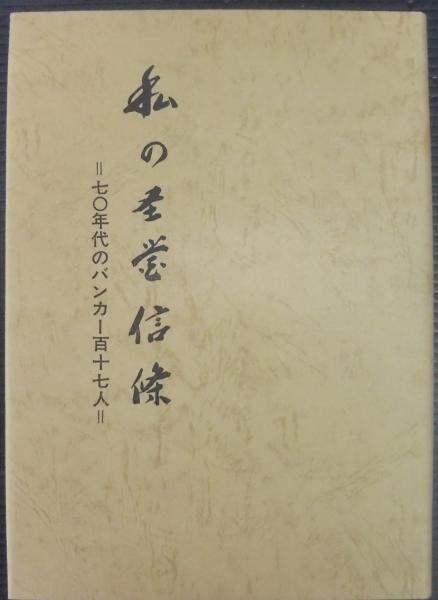 私の経営信條
=七〇年代のバンカー百十七人=